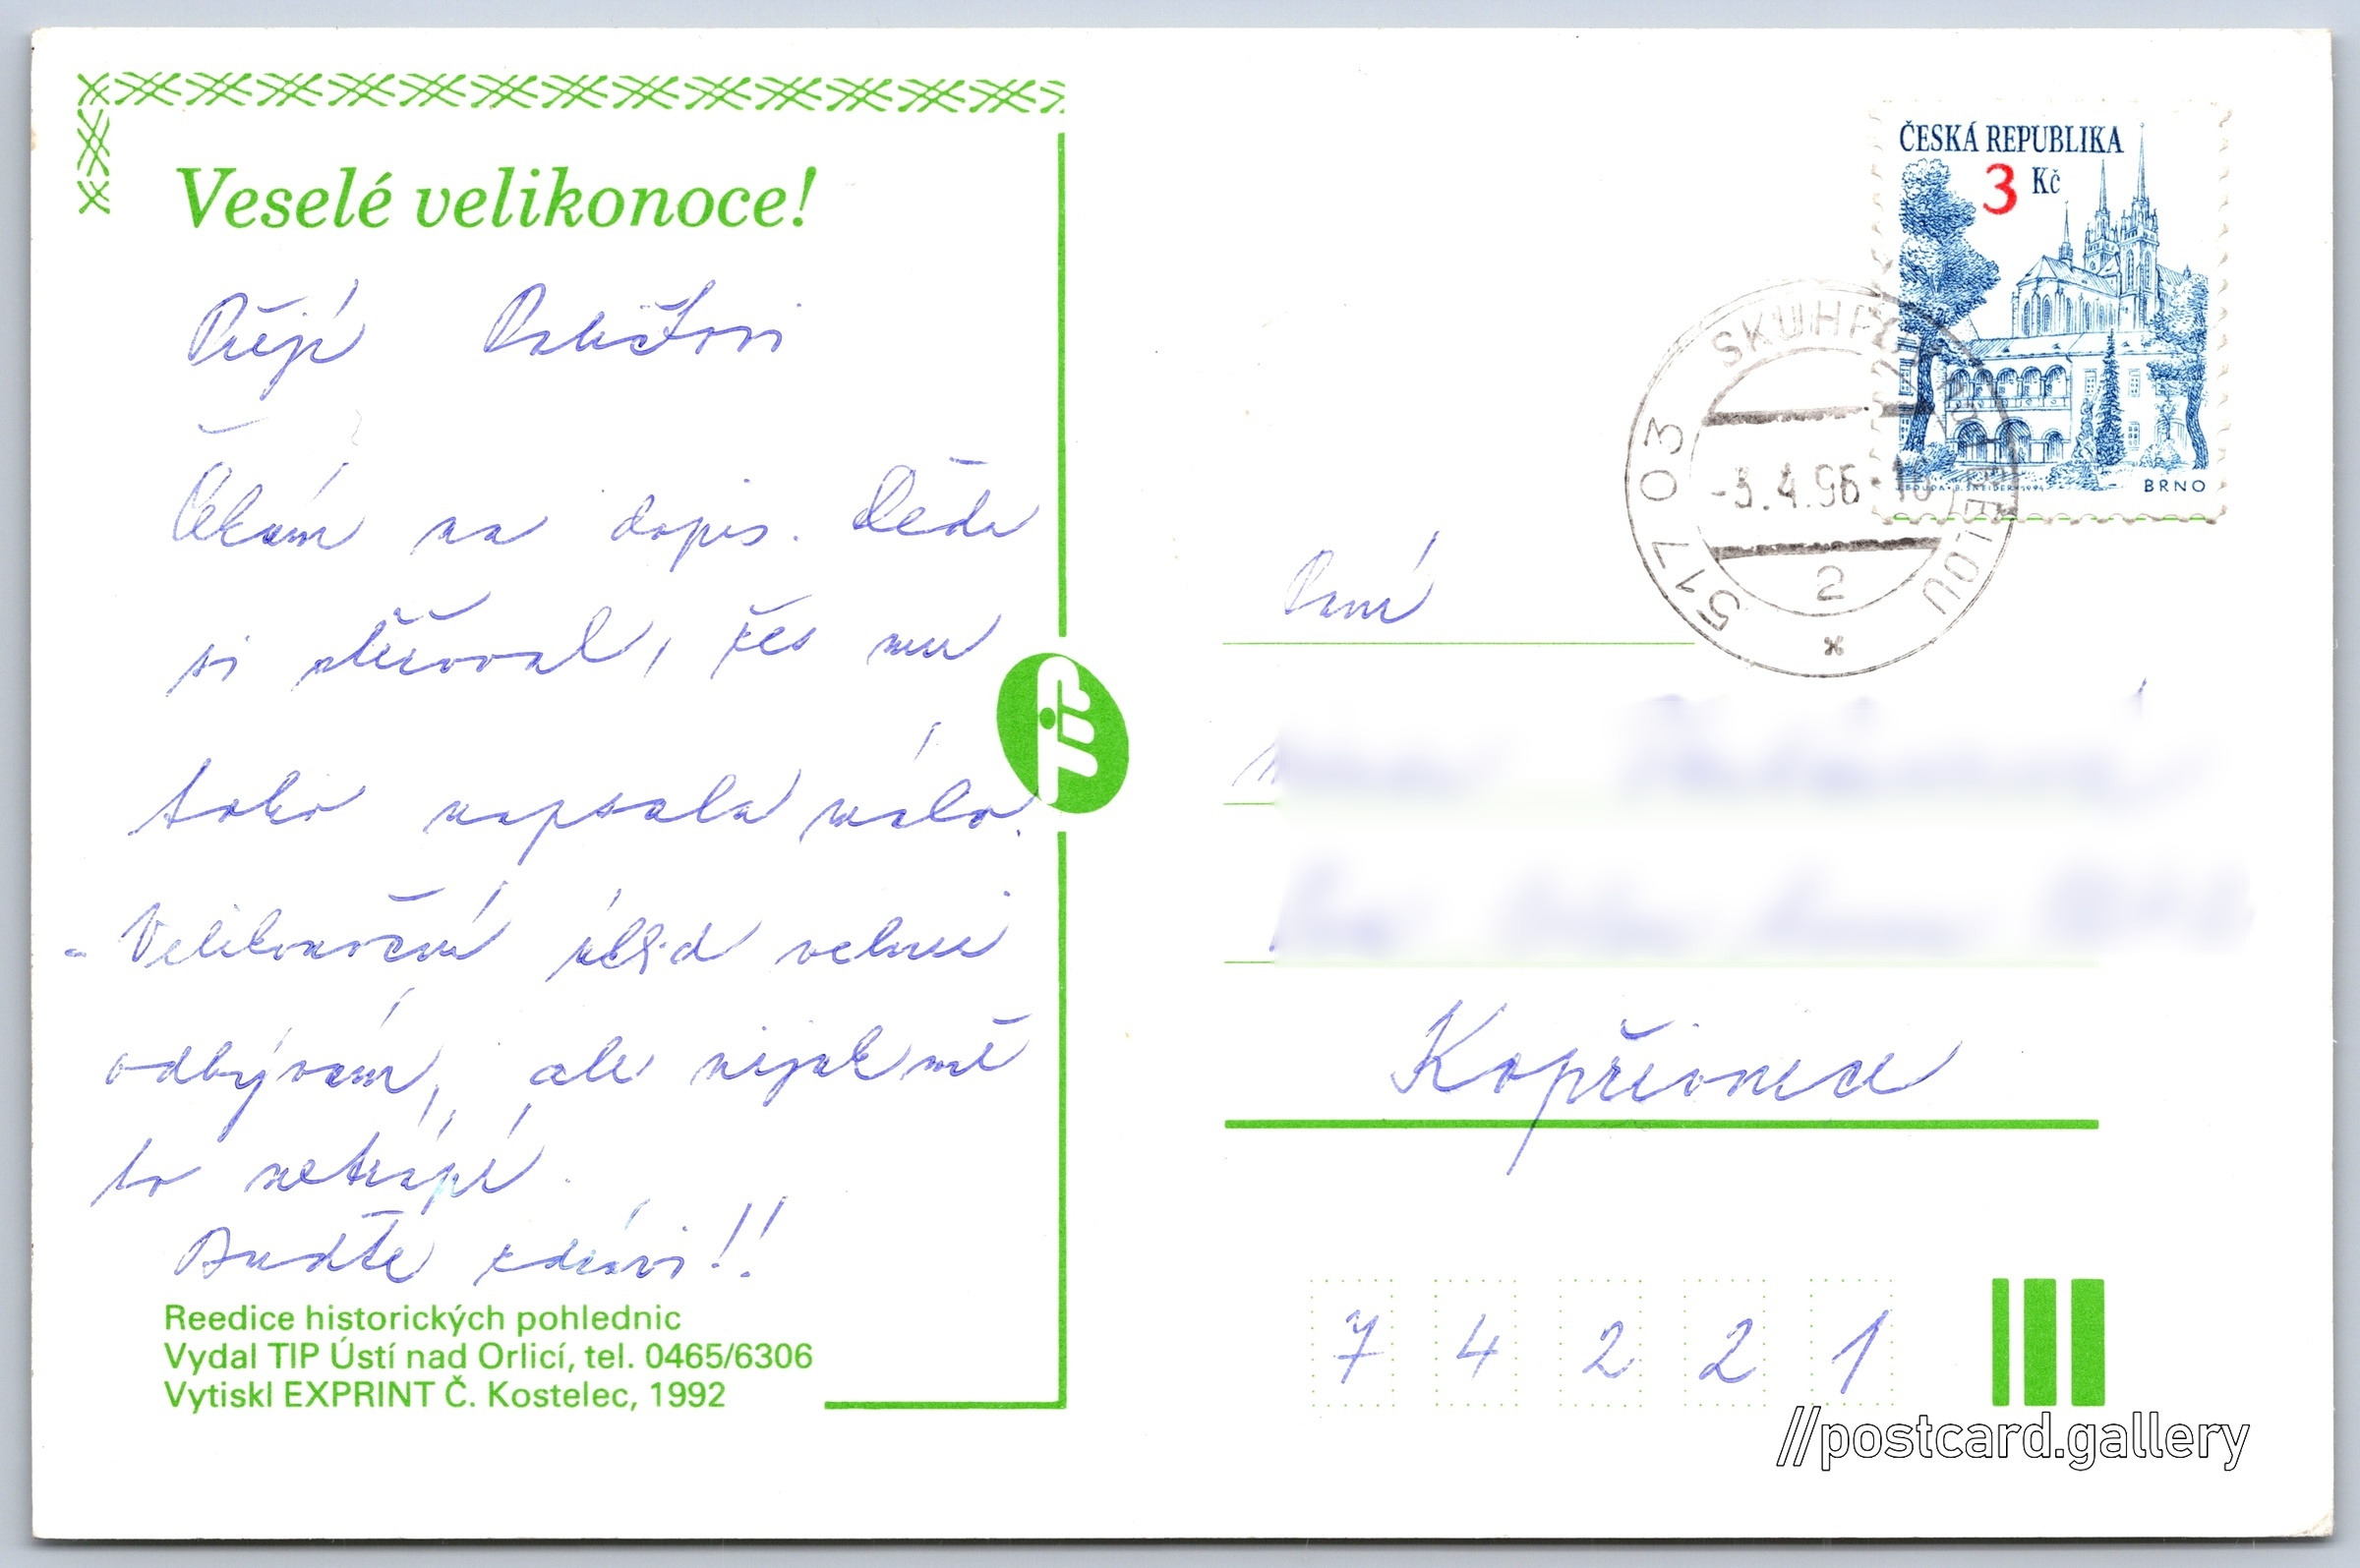 Veselé velikonoce!
Přejí
Čekám na dopis. Děda
si stěžoval, žes mu
toho napsala málo.
Velikonoční úklid velmi
odbývám, ale nijak mě
to netrápí.
Buďte zdrávi!!
Reedice historických pohlednic
Vydal TIP Ústí nad Orlicí, tel. 0465/6306
Vytiskl EXPRINT Č. Kostelec, 1992
ČESKÁ REPUBLIKA
3 Kč
BRNO
517 03
-3.4.96
2
Paní
Kopřivnice
7 4 2 2 1
//postcard.gallery